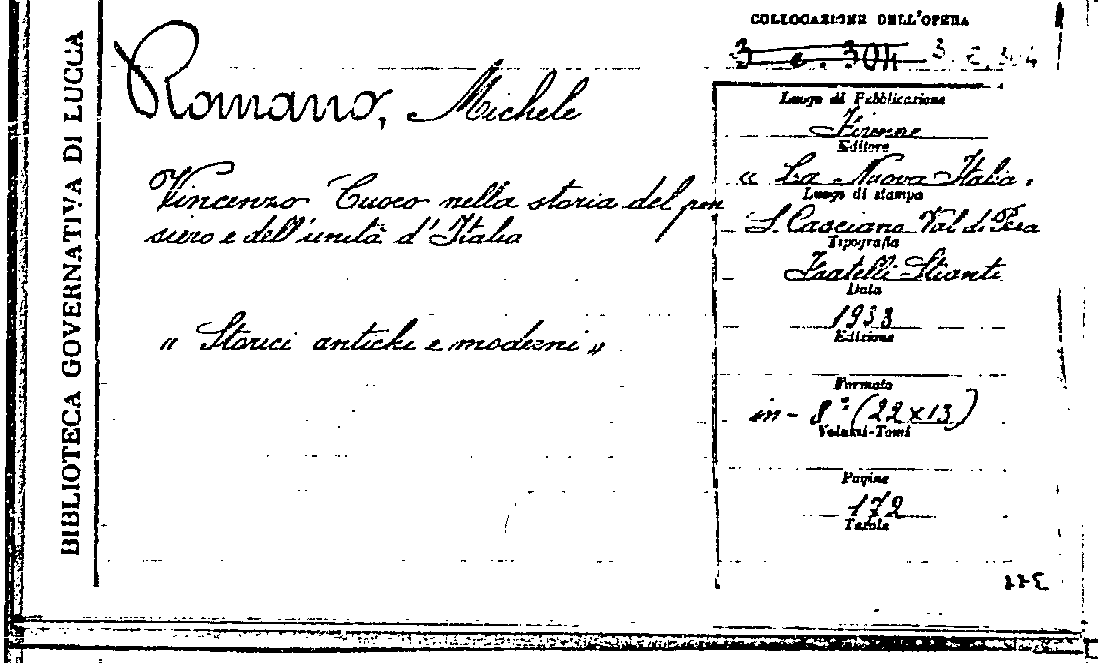 BIBLIOTECA GOVERNATIVA DI LUCCA
Romano, Michele
Vincenzo Cuoco nella storia del pen
siero e dell'unità d'Italia
« Storici antichi e moderni »
COLLOCAZIONE DELL'OPERA
3 c. 304 3. C. 304
Luogo di Pubblicazione
Firenze
Editore
« La Nuova Italia.
Luogo di stampa
S. Casciano Val di Pesa
Tipografia
Fratelli Stianti
Data
1933
Edizione
Formato
in - 8° (22 x 13)
Volumi-Tomi
Pagine
172
Tavole